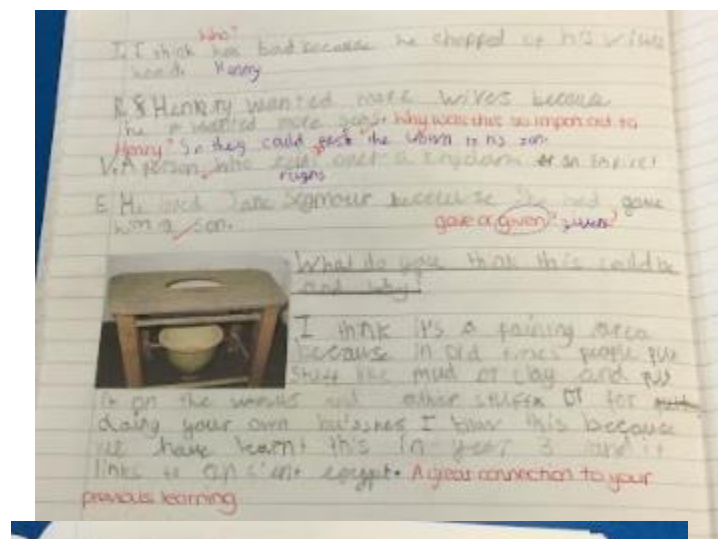 Who?
I. I think has bad because he chopped of his wives
head. Henry
R 8 Henry wanted more wives because
he wanted more sons. Why was this so important to
Henry? So they could pass the crown to his son.
V. A person who over a kingdom or an empire!
reigns
E He loved Jane Seymour because she had gave
him a son. gave or given?
What do you think this could be
and why?
I think it's a paining area
because in old times people put
stuff like mud or clay and put
it on the and other stuff or for
doing your own I know this because
we have learnt this in year 3 and it
links to egypt. A great connection to your
previous learning